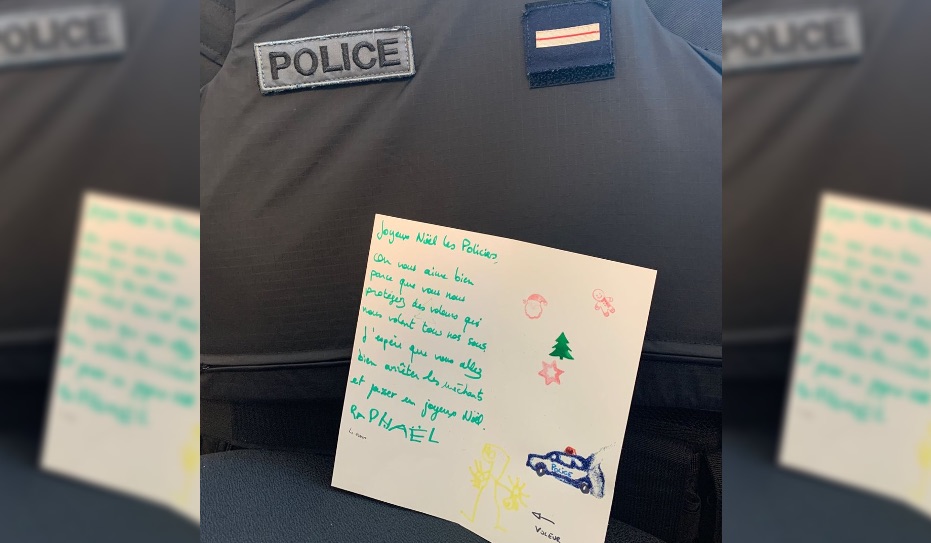 POLICE
Joyeux Noël les Policiers,
on vous aime bien
parce que vous nous
protégez des voleurs qui
nous volent tous nos sous.
J'espère que vous allez
bien arrêter les méchants
et passer un joyeux Noël.
RAPHAËL
POLICE
VOLEUR